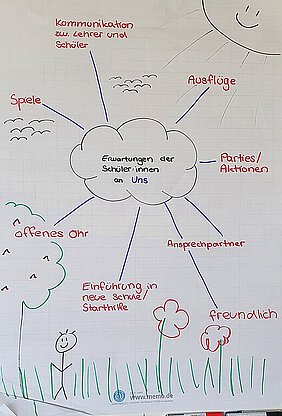 Kommunikation
zw. Lehrer und
Schüler
Ausflüge
Spiele
Erwartungen der
Schüler·innen
an Uns
Parties/
Aktionen
offenes Ohr
Ansprechpartner
Einführung in
neue Schule/
Starthilfe
freundlich
www.memo.de